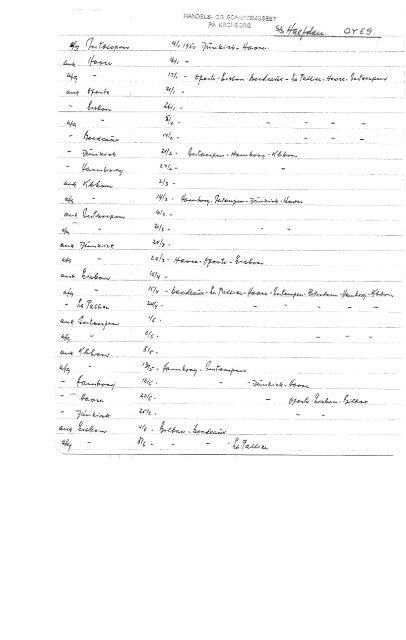 HANDELS- OG SØFARTSMUSEET
PÅ KRONBORG
s/s Hafdan. OYES.
afg Antwerpen 4/1 1960 Dünkirk - Havre.
ank Havre 16/1 -
afg " 17/1 - Oporto - Lisbon - Bordeaux - La Pallice - Havre - Antwerpen
ank Oporto 21/1 -
- Lisbon 26/1 -
afg " 8/2 - - - -
- Bordeaux 14/2 - - - -
- Dünkirk 21/2 - Antwerpen - Hamborg - Kbhvn
- Hamborg 27/2 - "
ank Kbhvn 2/3 -
afg " 14/3 - Hamborg - Antwerpen - Dünkirk - Havre
ank Antwerpen
afg " 21/3 - - -
ank Dünkirk
afg " 23/3 - Havre - Oporto - Lisbon
ank Lisbon 10/4 -
afg " 15/4 - Bordeaux - La Pallice - Havre - Antwerpen - Rotterdam - Hamborg - Kbhvn
- La Pallice 20/4 -
ank Antwerpen 1/5 -
afg " - - - -
ank Kbhvn 8/5 -
afg " 13/5 - Hamborg - Antwerpen
- Hamborg 16/5 - - Dünkirk - Havre
- Havre - Oporto - Lisbon - Bilbao
- Dünkirk - -
ank Lisbon - Bilbao - Bordeaux
afg " 8/6 - - - La Pallice